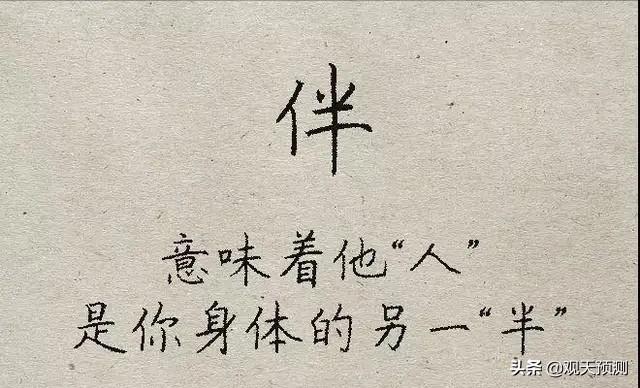 伴
意味着他“人”
是你身体的另一“半”
头条 @观天预测